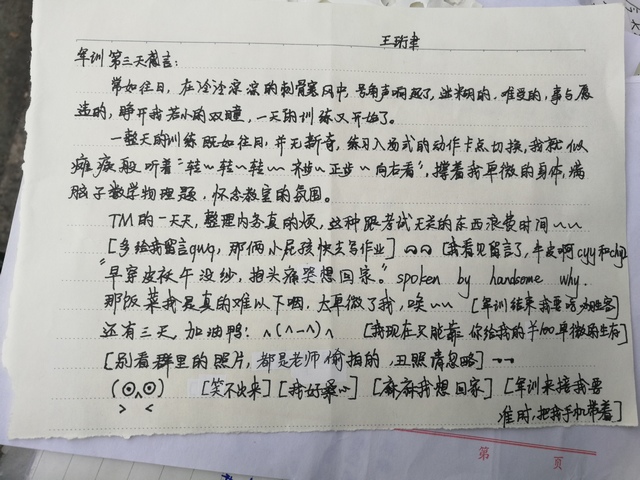 王珩聿
军训第三天箴言:
常如往日，在冷冷凉凉的刺骨寒风中，号角声响起了，迷糊的、难受的，事与愿
违的，睁开我若小的双瞳，一天的训练又开始了。
一整天的训练既如往日，并无新奇，练习入场式的动作卡点切换，我就似
瘫痪般听着“转～转～转～～ 齐步～正步～向右看”，撑着我卑微的身体，满
脑子数学物理题，怀念教室的氛围。
TM的一天天，整理内务真的烦，这种跟考试无关的东西浪费时间~~
[多给我留言qwq，那俩小屁孩快去写作业] [我看见留言了，牛皮啊cyy和
“早穿皮袄午没纱，抱头痛哭想回家。”spoken by handsome why.
那饭菜我是真的难以下咽，太卑微了我，唉~~ [军训结束我要吃必胜客]
还有三天，加油鸭! ^(^-^)^ [我现在只能靠你给我的¥100卑微的生存]
[别看群里的照片，都是老师偷拍的，丑照请忽略] ~~
(⊙^⊙) [笑不出来] [我好桑心] [麻麻我想回家] [军训来接我要
> < 准时，把我手机带着]
第 页